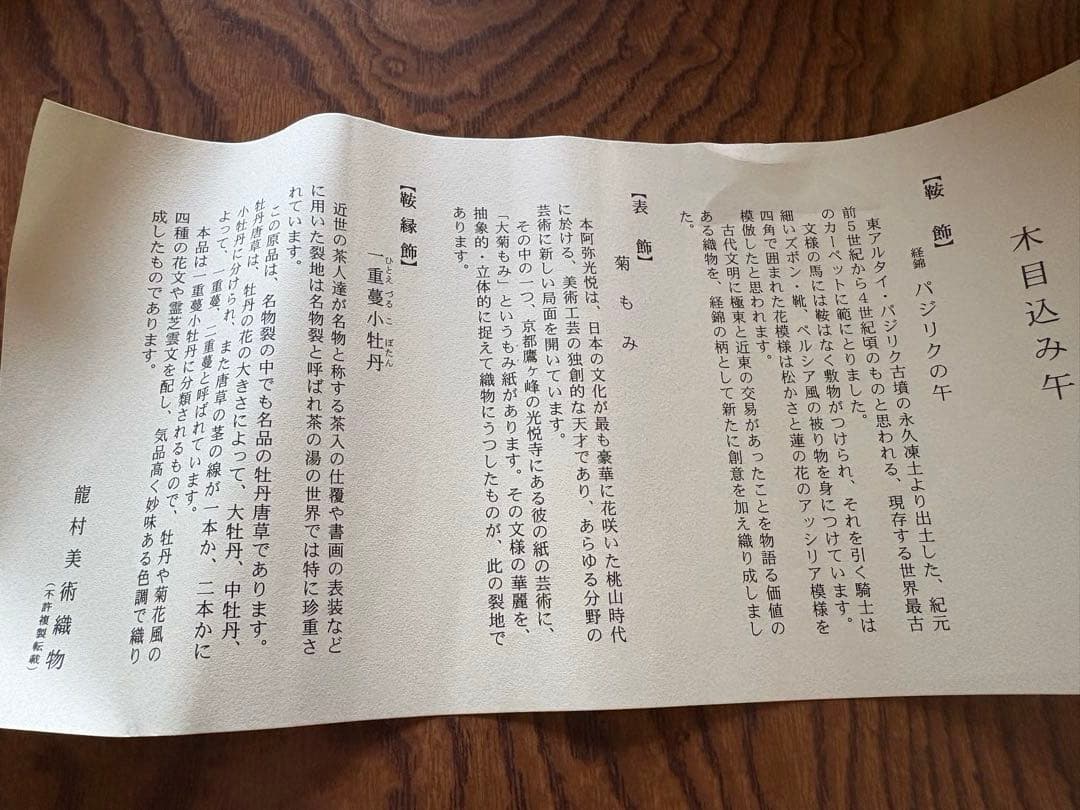 木目込み午
【鞍 飾】
経錦 パジリクの午
東アルタイ・パジリク古墳の永久凍土より出土した、紀元
前5世紀から4世紀頃のものと思われる、現存する世界最古
のカーペットに範にとりました。
文様の馬には鞍はなく敷物がつけられ、それを引く騎士は
細いズボン・靴、ペルシア風の被り物を身につけています。
四角で囲まれた花模様は松かさと蓮の花のアッシリア模様を
模倣したと思われます。
古代文明に極東と近東の交易があったことを物語る価値の
ある織物を、経錦の柄として新たに創意を加え織り成しまし
た。
【表 飾】
菊もみ
本阿弥光悦は、日本の文化が最も豪華に花咲いた桃山時代
に於ける、美術工芸の独創的な天才であり、あらゆる分野の
芸術に新しい局面を開いています。
その中の一つ、京都鷹ヶ峰の光悦寺にある彼の紙の芸術に、
「大菊もみ」というもみ紙があります。その文様の華麗を、
抽象的・立体的に捉えて織物にうつしたものが、此の裂地で
あります。
【鞍縁飾】
一重蔓小牡丹
ひとえ づる こ ぼたん
近世の茶人達が名物と称する茶入の仕覆や書画の表装など
に用いた裂地は名物裂と呼ばれ茶の湯の世界では特に珍重さ
れています。
この原品は、名物裂の中でも名品の牡丹唐草であります。
牡丹唐草は、牡丹の花の大きさによって、大牡丹、中牡丹、
小牡丹に分けられ、また唐草の茎の線が一本か、二本かに
よって、一重蔓、二重蔓と呼ばれています。
本品は一重蔓小牡丹に分類されるもので、牡丹や菊花風の
四種の花文や霊芝雲文を配し、気品高く妙味ある色調で織り
成したものであります。
龍村美術織物
(不許複製転載)